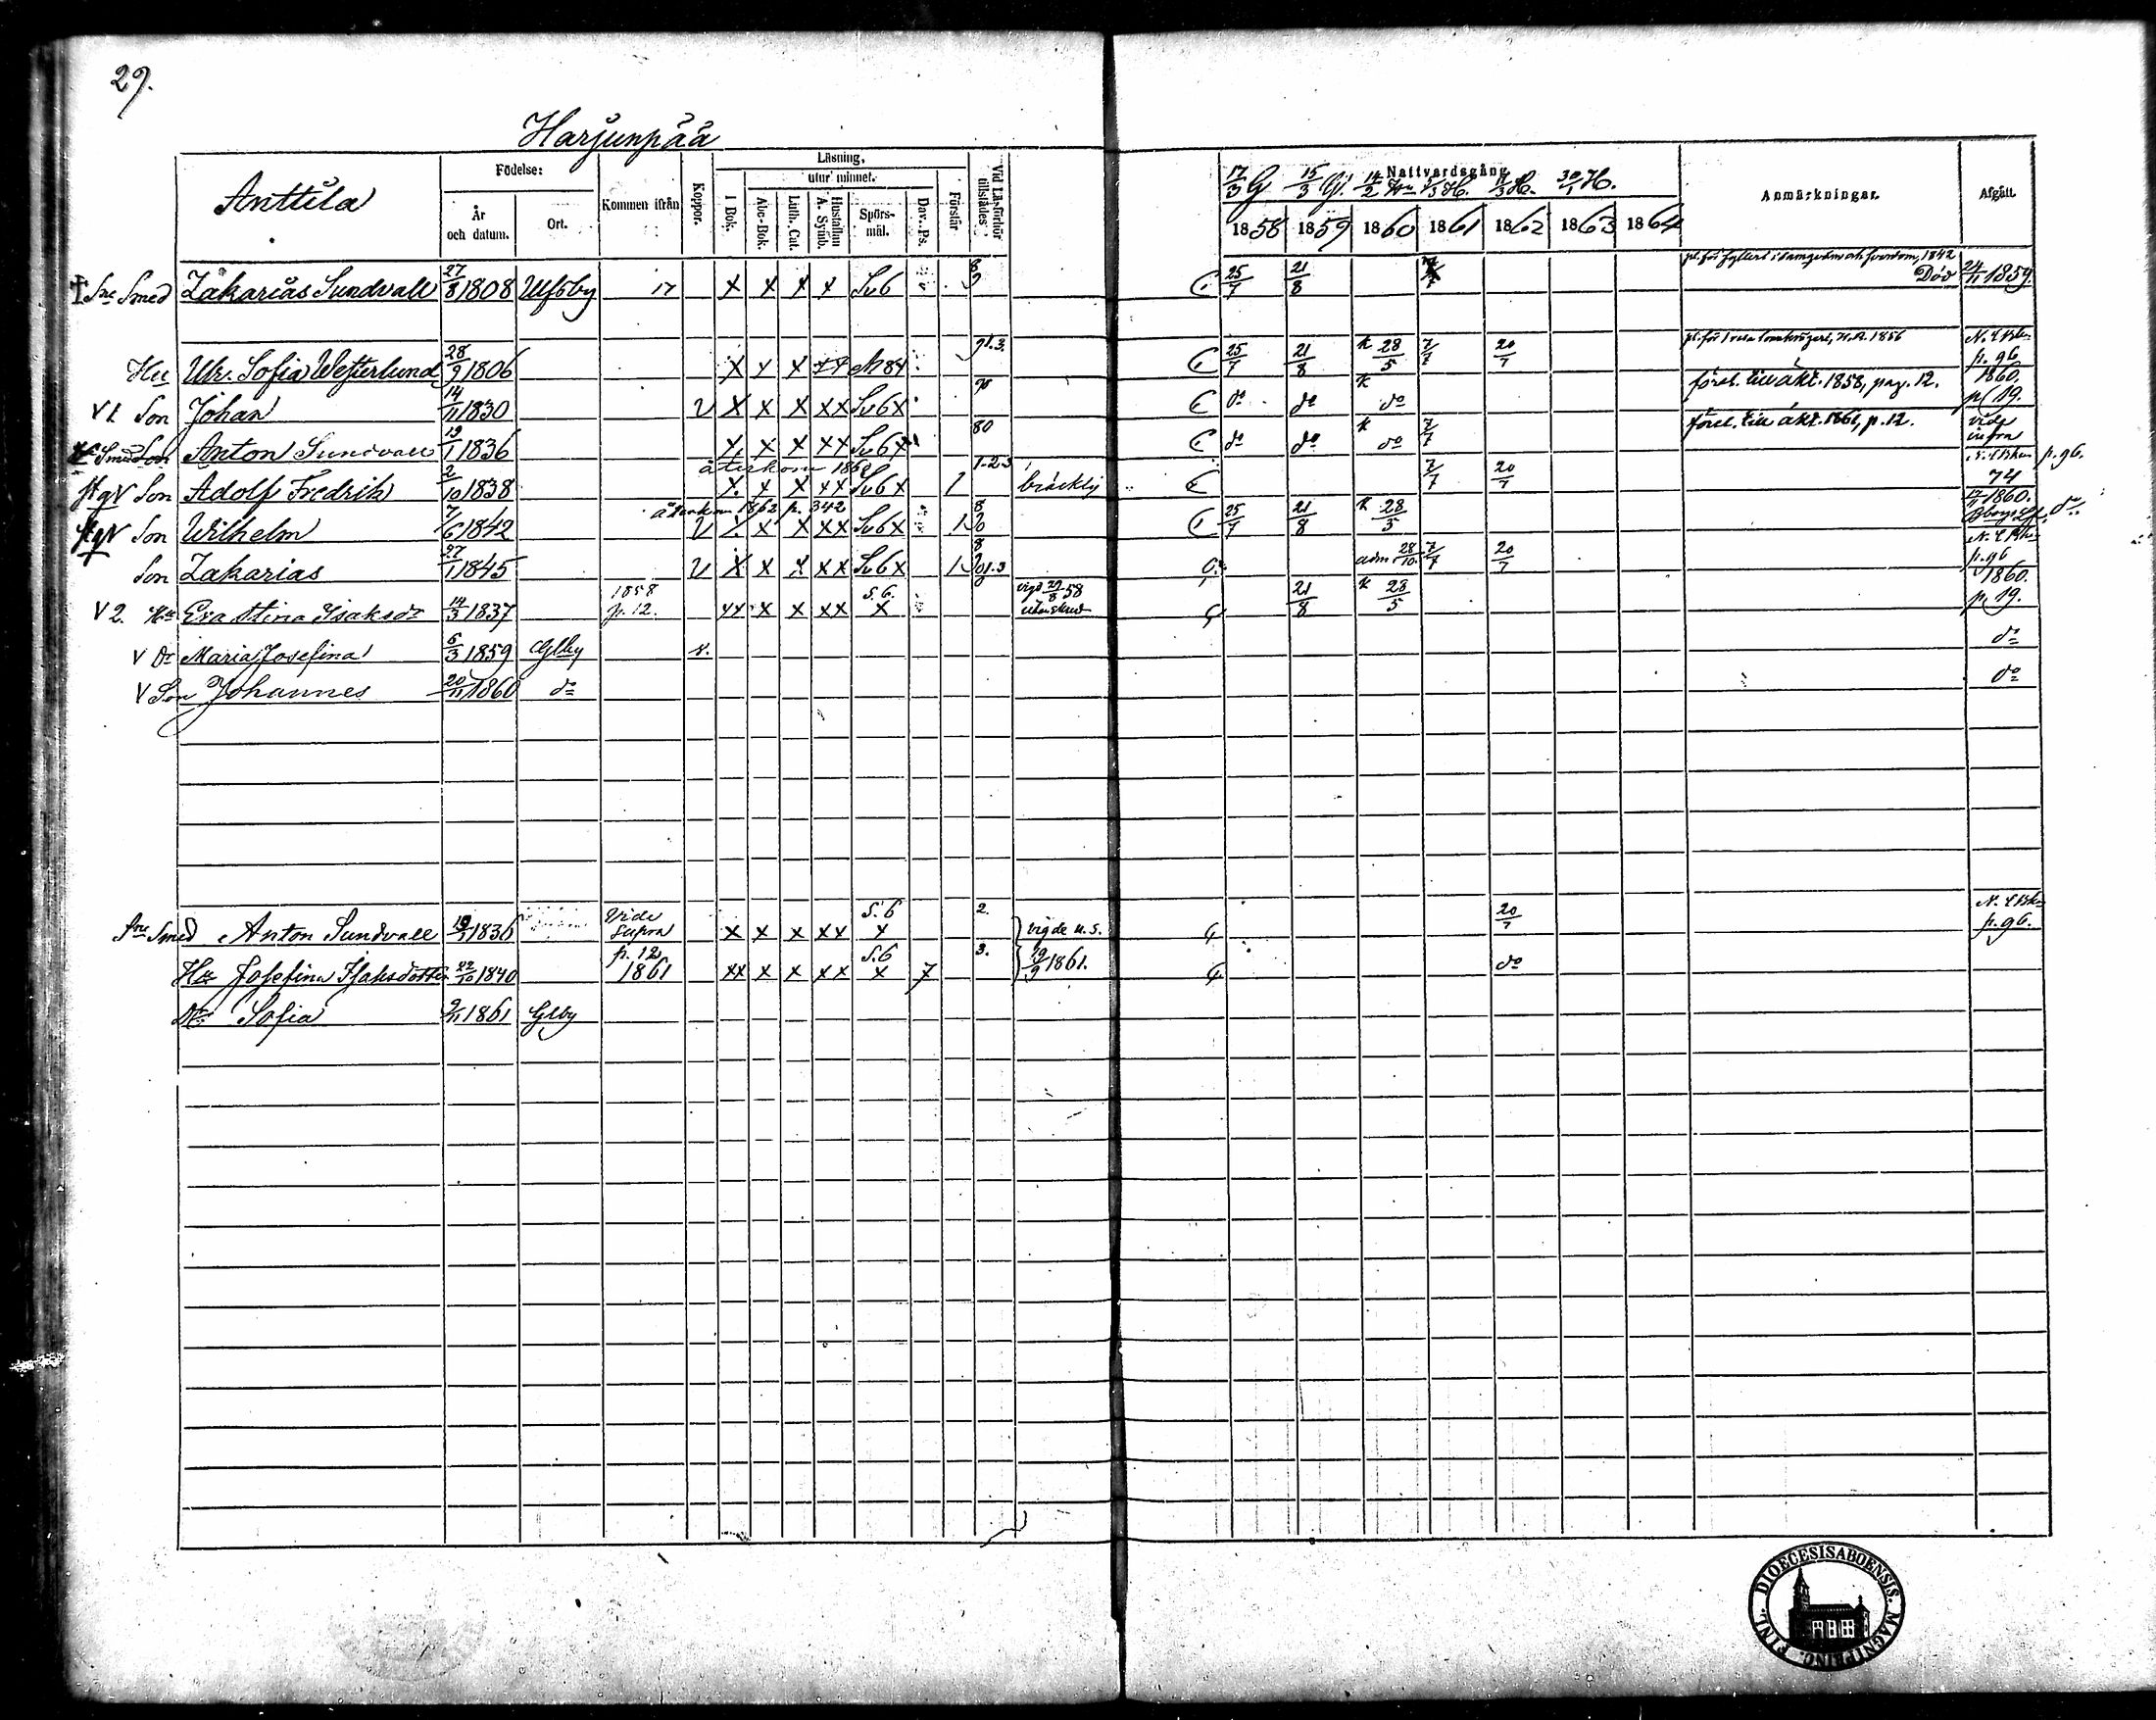 29.
Harjunpää
Anttila
Födelse:
År och datum.
Ort.
Kommen ifrån
Koppor.
Läsning,
I Bok.
utur minnet.
Abc-Bok.
Luth. Cat.
Hustaflan A. Symb.
Spörs-mål.
Dav. Ps.
Förstår
Vid Läsförhör tillstädes
Nattvardsgång
17/3 G 15/3 Gl. 14/2 H. H. 30/1 H.
1858 1859 1860 1861 1862 1863 1864
Anmärkningar.
Afgått.
Sne Smed Zakarias Sundvall 27/8 1808 Ulfsby 17 x x x x Sv6 25/7 21/8 1842 Död 24/11 1859.
Hu Ulr. Sofia Westerlund 28/9 1806 x x x xx 25/7 21/8 k 28/5 7/7 20/7 1856 p. 96
V 1. Son Johan 14/11 1830 v x x x xx Sv6x do do k do förel. till äkt. 1858, pag. 12. 1860. p. 19.
Smed Son Anton Sundvall 19/1 1836 x x x xx Sv6x 80 do do k do 7/7 förel. till äkt. 1861, p. 12. vide infra
återkom 186
Son Adolf Fredrik 2/10 1838 x x x xx Sv6x 1 1-2-3 bräcklig 7/7 20/7 p. 96. 74
återkom 1862 p. 342
Son Wilhelm 7/6 1842 v x x xx Sv6x 1 25/7 21/8 k 28/5 1860. do
Son Zakarias 27/1 1845 v x x x xx Sv6x 1 adm 28/10. 7/7 20/7 p. 96
V 2. Hu Eva Stina Isaksdr 14/3 1837 1858 p. 12. xx x x xx S.6. x vigd 29/8 58 21/8 k 28/5 1860. p. 19.
V Dr Maria Josefina 6/3 1859 Glby v. do
V Son Johannes 20/11 1860 do do
Sne Smed Anton Sundvall 19/1 1836 Vide Supra x x x xx S.6 x 2. vigde u.s. 20/7 p. 96.
Hu Josefina Isaksdotter 22/10 1840 p. 12 1861 xx x x xx S.6 x 7 3. 19/9 1861. do
Dr Sofia 9/11 1861 Glby
DIOECESIS ABOENSIS. MAGNI PRINC. FINL.